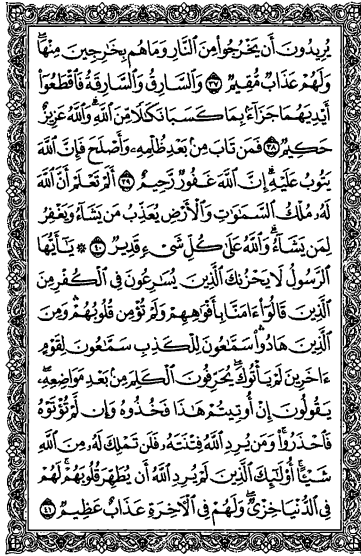 يُرِيدُونَ أَن يَخْرُجُوا۟ مِنَ ٱلنَّارِ وَمَا هُم بِخَٰرِجِينَ مِنْهَا ۖ
وَلَهُمْ عَذَابٌ مُّقِيمٌ ٣٧ وَٱلسَّارِقُ وَٱلسَّارِقَةُ فَٱقْطَعُوٓا۟
أَيْدِيَهُمَا جَزَآءًۢ بِمَا كَسَبَا نَكَٰلًا مِّنَ ٱللَّهِ ۗ وَٱللَّهُ عَزِيزٌ
حَكِيمٌ ٣٨ فَمَن تَابَ مِنۢ بَعْدِ ظُلْمِهِۦ وَأَصْلَحَ فَإِنَّ ٱللَّهَ
يَتُوبُ عَلَيْهِ ۗ إِنَّ ٱللَّهَ غَفُورٌ رَّحِيمٌ ٣٩ أَلَمْ تَعْلَمْ أَنَّ ٱللَّهَ
لَهُۥ مُلْكُ ٱلسَّمَٰوَٰتِ وَٱلْأَرْضِ يُعَذِّبُ مَن يَشَآءُ وَيَغْفِرُ
لِمَن يَشَآءُ ۗ وَٱللَّهُ عَلَىٰ كُلِّ شَىْءٍ قَدِيرٌ ٤٠ ۞ يَٰٓأَيُّهَا
ٱلرَّسُولُ لَا يَحْزُنكَ ٱلَّذِينَ يُسَٰرِعُونَ فِى ٱلْكُفْرِ مِنَ
ٱلَّذِينَ قَالُوٓا۟ ءَامَنَّا بِأَفْوَٰهِهِمْ وَلَمْ تُؤْمِن قُلُوبُهُمْ ۛ وَمِنَ
ٱلَّذِينَ هَادُوا۟ ۛ سَمَّٰعُونَ لِلْكَذِبِ سَمَّٰعُونَ لِقَوْمٍ
ءَاخَرِينَ لَمْ يَأْتُوكَ ۖ يُحَرِّفُونَ ٱلْكَلِمَ مِنۢ بَعْدِ مَوَاضِعِهِۦ ۖ
يَقُولُونَ إِنْ أُوتِيتُمْ هَٰذَا فَخُذُوهُ وَإِن لَّمْ تُؤْتَوْهُ
فَٱحْذَرُوا۟ ۚ وَمَن يُرِدِ ٱللَّهُ فِتْنَتَهُۥ فَلَن تَمْلِكَ لَهُۥ مِنَ ٱللَّهِ
شَيْـًٔا ۚ أُو۟لَٰٓئِكَ ٱلَّذِينَ لَمْ يُرِدِ ٱللَّهُ أَن يُطَهِّرَ قُلُوبَهُمْ ۚ لَهُمْ
فِى ٱلدُّنْيَا خِزْىٌ ۖ وَلَهُمْ فِى ٱلْءَاخِرَةِ عَذَابٌ عَظِيمٌ ٤١